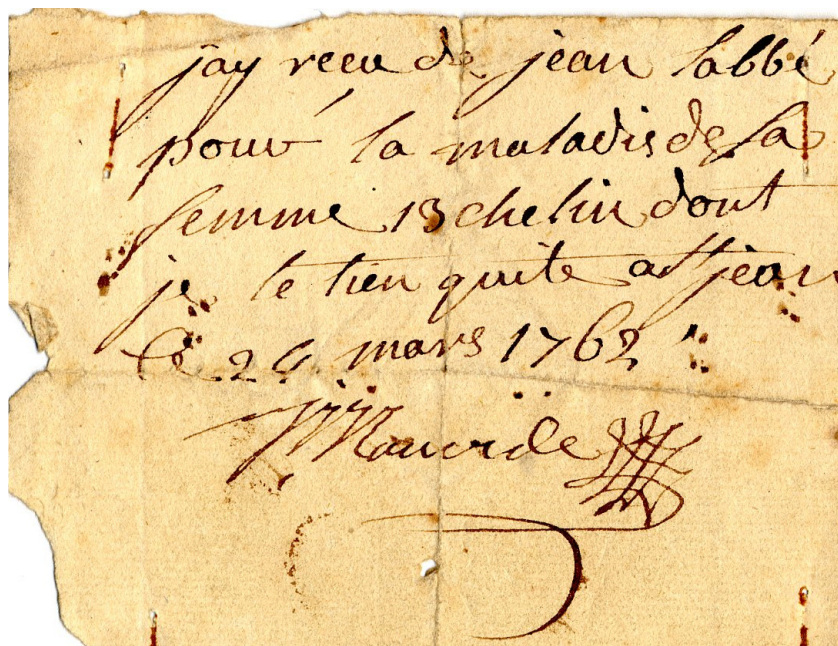 jay receu de jean labbé
pour la maladie de sa
femme 13 chelin dont
je le tien quite a St jean
le 24 mars 1762